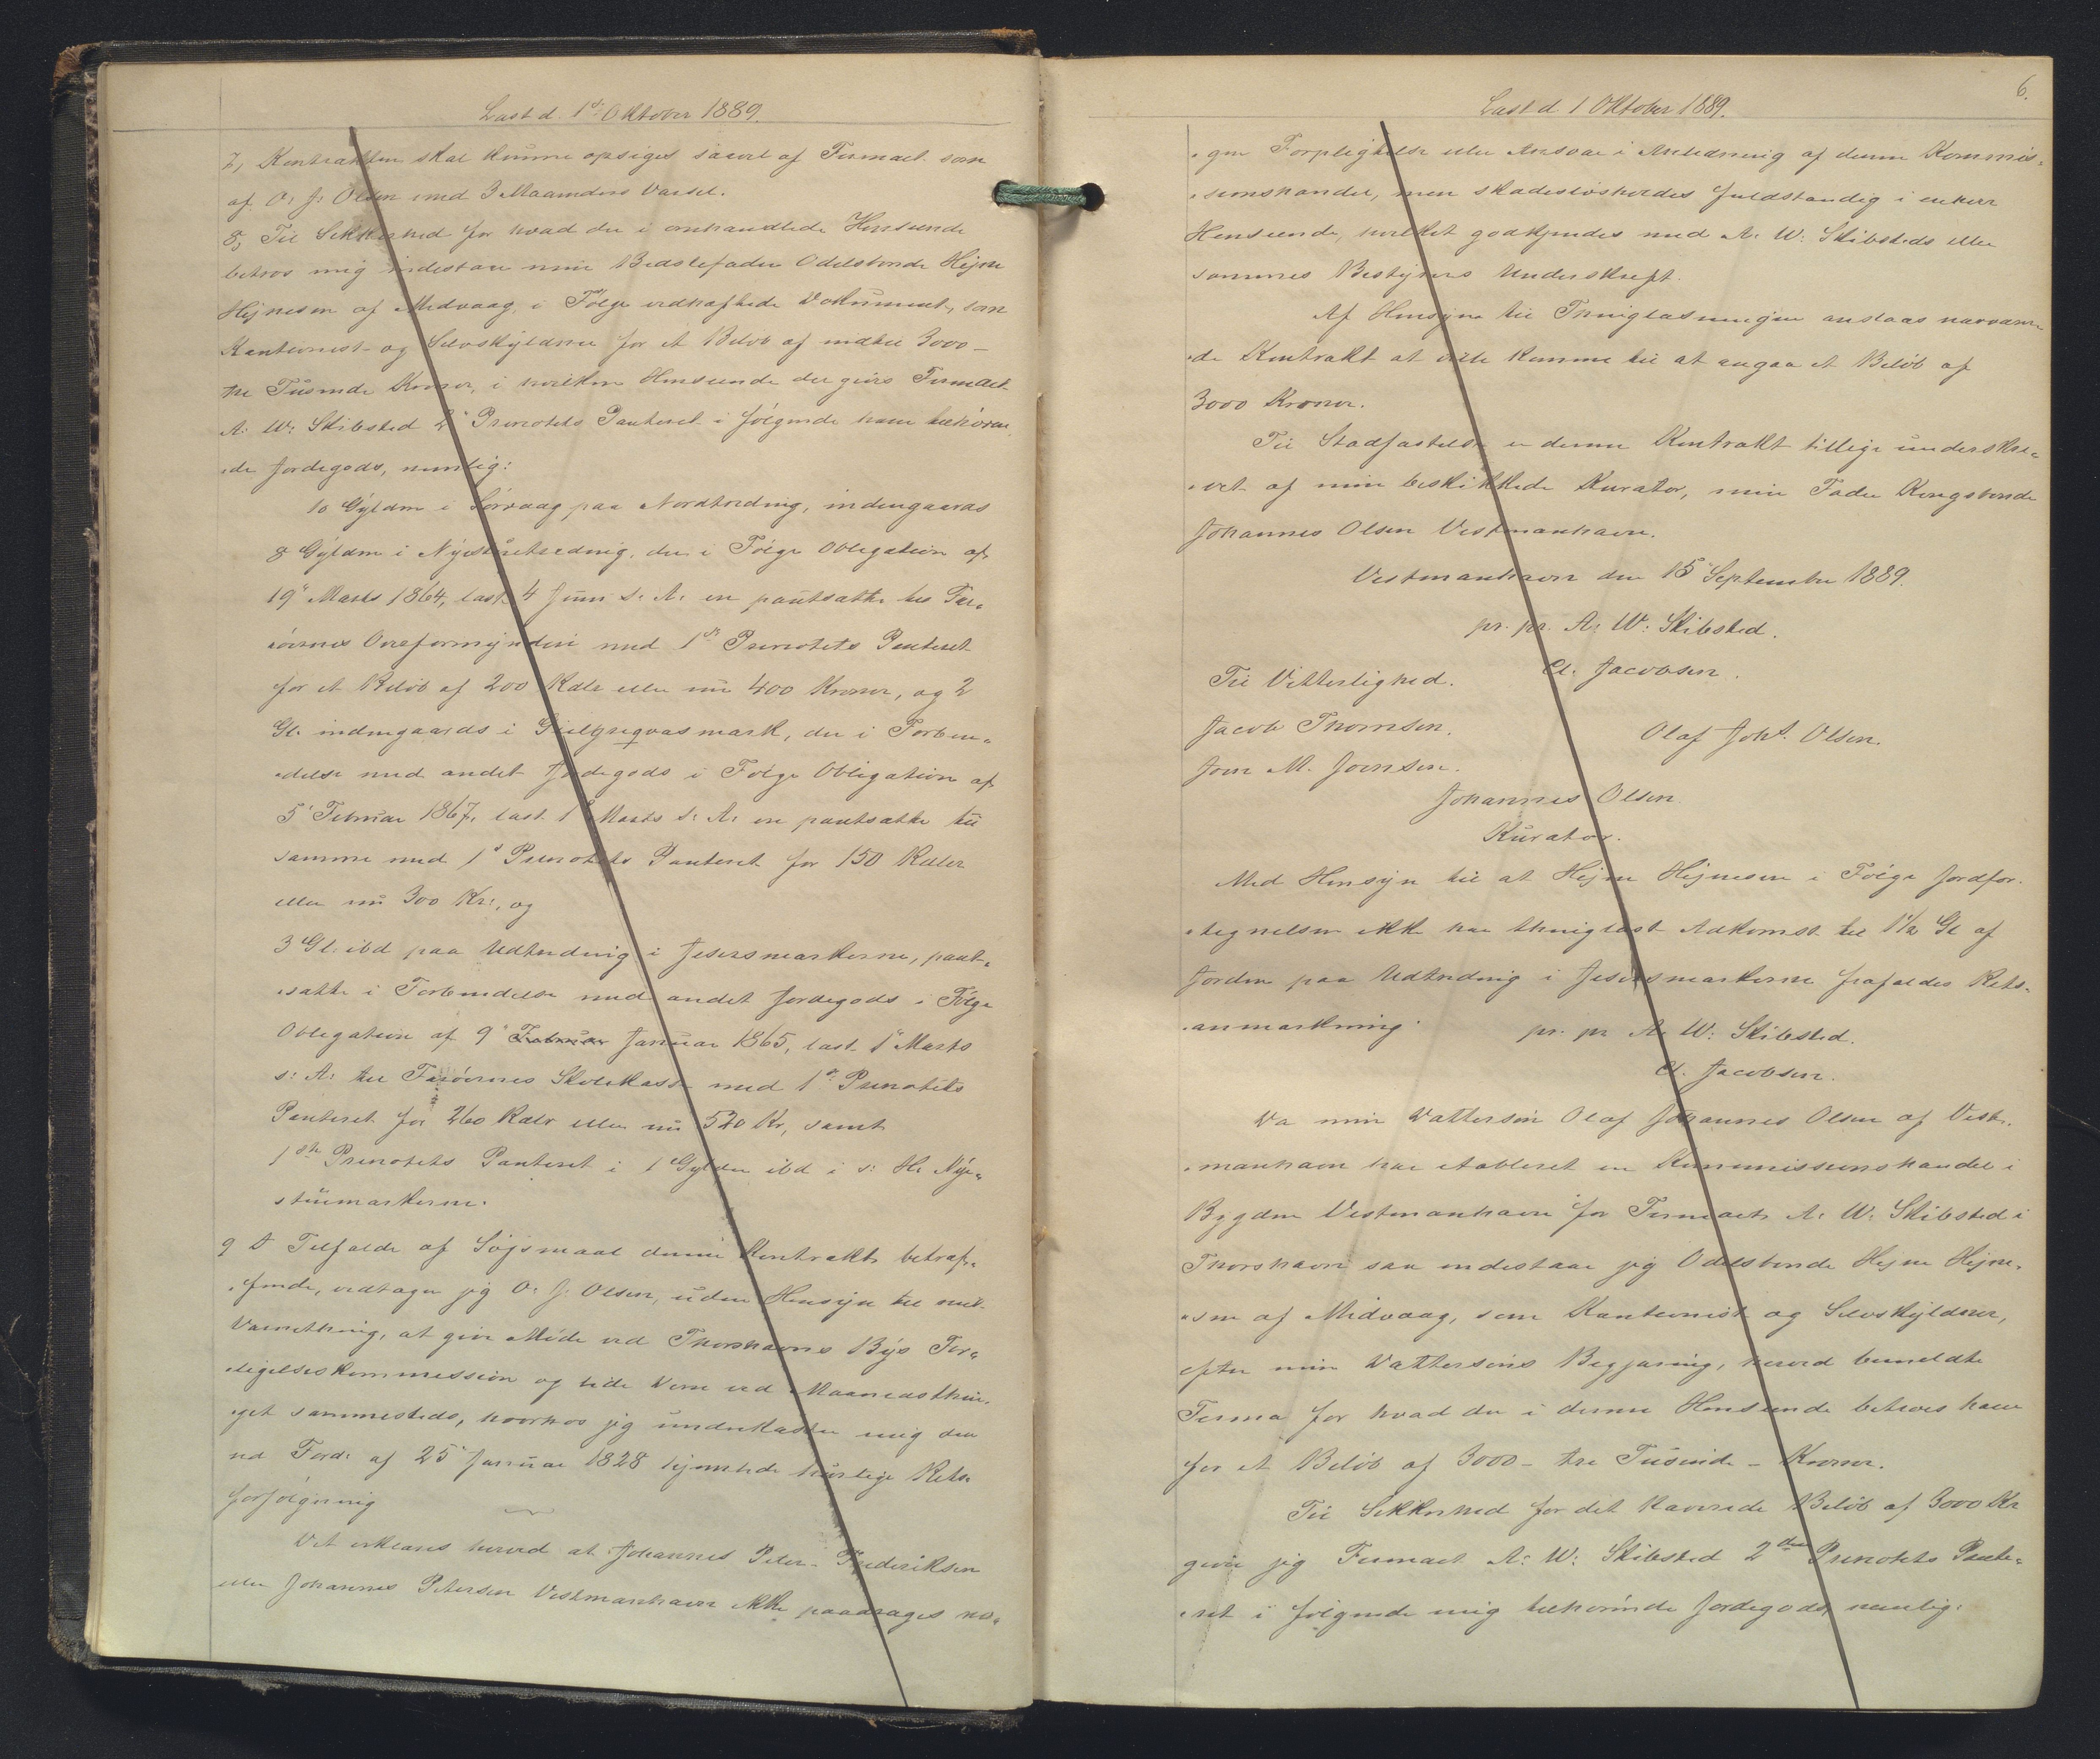 Læst d. 1ste Oktober 1889.
7, Kontrakten skal kunne opsiges saavel af Firmaet som
af O. J. Olsen med 3 Maaneders Varsel.
8, Til Sikkerhed for hvad der i omhandlede Henseende
betros mig indestaar min Bedstefader Odelsbonde Hejne
Hejnesen af Midvaag, i Følge vedhæftede Dokument, som
Kautionist- og Selvskyldner for et Beløb af indtil 3000 –
tre Tusinde Kroner, i hvilken Henseende der gives Firmaet
A. W. Skibsted 2d Prioritets Panteret i følgende ham tilhøren-
-de Jordegods, nemlig:
10 Gylden i Sørvaag paa Nordtrednig, indengaards
8 Gylden i Nýestuetrednig, der i Følge Obligation af
19de Marts 1864, læst 4 Juni s. A. er pantsatte til Fær-
-øernes Overformynderi med 1ste Prioritets Panteret
for et Beløb af 200 Rdlr eller nu 400 Kroner, og 2
Gl. indengaards i mark, der i Forbin-
-delse med andet Jordegods i Følge Obligation af
5' Februar 1867, læst 1' Marts s. A. er pantsatte til
samme med 1' Prioritets Panteret for 150 Rdler
eller nu 300 Kr., og
3 Gl. ibd paa Udtredning i Jesersmarkerne, pant-
-satte i Forbindelse med andet Jordegods i Følge
Obligation af 9' Februar Januar 1865, læst 1' Marts
s. A. til Færøernes Skolekasse med 1ste Prioritets
Panteret for 260 Rdlr eller nu 520 Kr, samt
1ste Prioritets Panteret i 1 Gylden ibd i s. H. Nýe-
stuemarkerne.
9 I Tilfælde af Søgsmaal denne Kontrakt betræf-
-fende, vedtager jeg O. J. Olsen, uden Hensyn til mit
Værnething, at give Møde ved Thorshavns Býs For-
-ligelseskommission og lide Dom ved Maanedsthin-
-get sammesteds, hvorhos jeg underkaster mig den
ved Forð. af 25' Januar 1828 hjemlede hurtige Rets-
forfølgning
Det erklæres herved at Johannes Peter Frederiksen
eller Johannes Petersen Vestmanhavn ikke paadrages no-
6.
Læst d 1 Oktober 1889.
-gen Forpligtelse eller Ansvar i Anledning af denne Kommis-
-sionshandel, men skadesløsholdes fuldstændig i enhver
Henseende, hvilket godkjendes med A. W. Skibsteds eller
sammes Bestyrers Underskrift.
Af Hensyn til Thinglæsningen anslaas nærværen-
-de Kontrakt at ville komme til at angaa et Beløb af
3000 Kroner.
Til Stadfæstelse er denne Kontrakt tillige underskre-
-vet af min beskikkede Kurator, min Fader Kongsbonde
Johannes Olsen Vestmanhavn.
Vestmanhavn den 15' September 1889.
pr. pr. A. W. Skibsted.
Cl. Jacobsen.
Til Vitterlighed.
Jacob Thomsen.
Olaf Johs. Olsen.
Joen M. Joensen.
Johannes Olsen
Kurator.
Med Hensyn til at Hejne Hejnesen i Følge Jordfor-
-tegnelsen ikke har thinglæst Adkomst til 1½ Gl af
Jorden paa Udtredning i Jesersmarkerne frafaldes Rets-
-anmærkning.
pr. pr A. W. Skibsted.
Cl. Jacobsen.
Da min Dattersøn Olaf Johannes Olsen af Vest-
-manhavn har etableret en Kommissionshandel i
Bygden Vestmanhavn for Firmaet A. W. Skibsted i
Thorshavn saa indestaar jeg Odelsbonde Hejne Hejne-
-sen af Midvaag, som Kautionist og Selvskyldner,
efter min Dattersøns Begjæring, herved bemeldte
Firma for hvad der i denne Henseende betroes ham
for et Beløb af 3000 – tre Tusinde – Kroner.
Til Sikkerhed for det kaverede Beløb af 3000 Kr
giver jeg Firmaet A. W. Skibsted 2den Prioritets Pante-
-ret i følgende mig tilhørende Jordegods, nemlig: